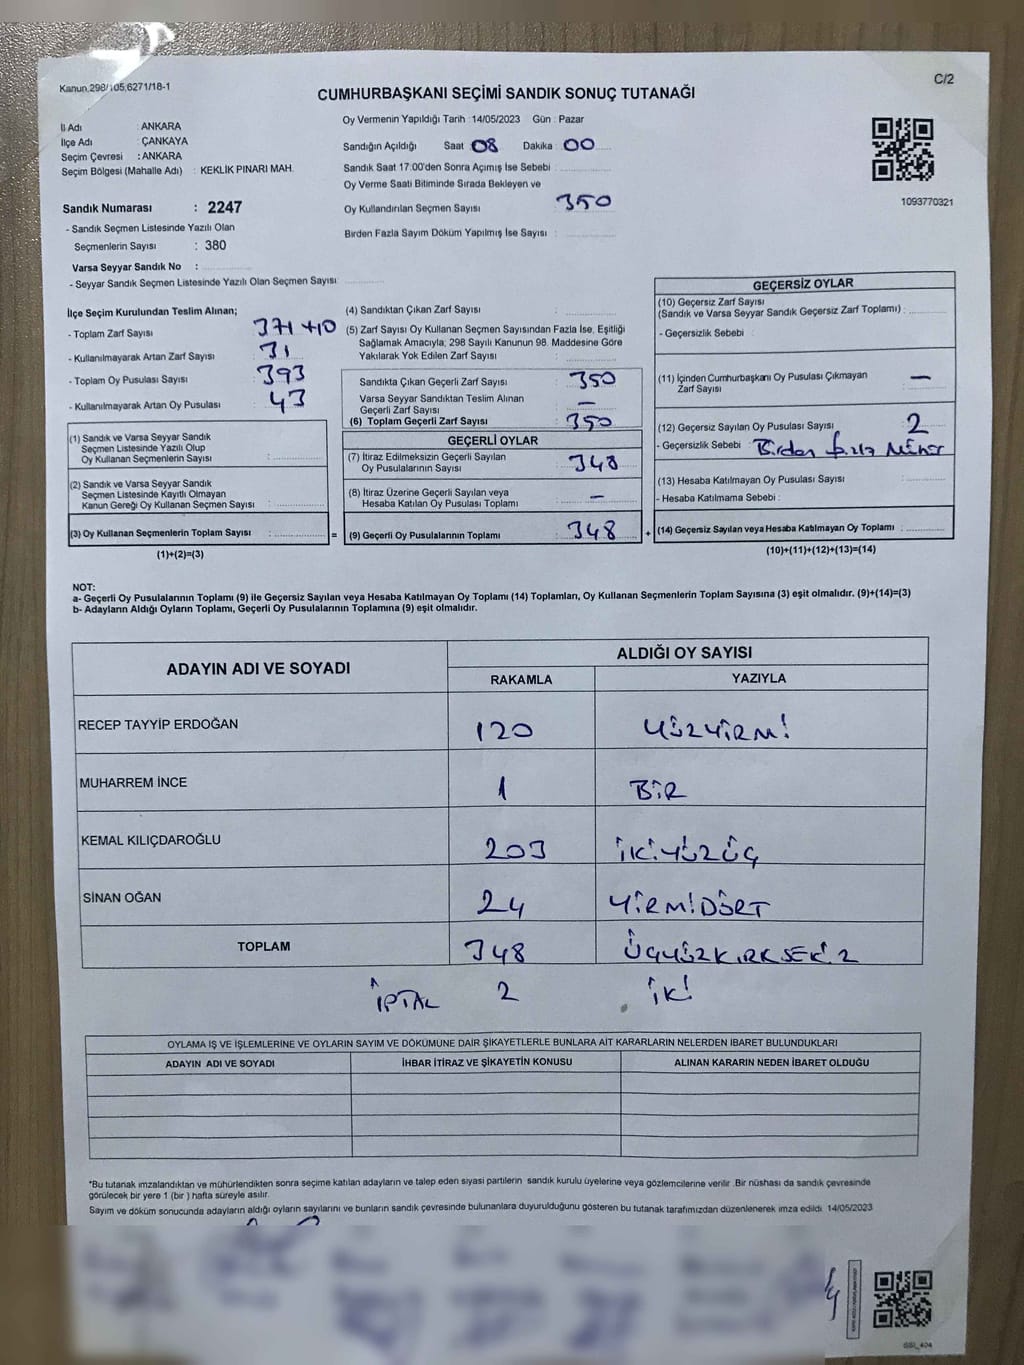 Kanun.298/105;6271/18-1
C/2
CUMHURBAŞKANI SEÇİMİ SANDIK SONUÇ TUTANAĞI
İl Adı : ANKARA
İlçe Adı : ÇANKAYA
Seçim Çevresi : ANKARA
Seçim Bölgesi (Mahalle Adı) : KEKLİK PINARI MAH.
Oy Vermenin Yapıldığı Tarih :14/05/2023 Gün : Pazar
Sandığın Açıldığı Saat 08 Dakika : 00
Sandık Saat 17:00'den Sonra Açımış İse Sebebi :
Oy Verme Saati Bitiminde Sırada Bekleyen ve
Oy Kullandırılan Seçmen Sayısı 350
Birden Fazla Sayım Döküm Yapılmış İse Sayısı :
1093770321
Sandık Numarası : 2247
- Sandık Seçmen Listesinde Yazılı Olan
Seçmenlerin Sayısı : 380
Varsa Seyyar Sandık No :
- Seyyar Sandık Seçmen Listesinde Yazılı Olan Seçmen Sayısı
İlçe Seçim Kurulundan Teslim Alınan;
- Toplam Zarf Sayısı 371+10
- Kullanılmayarak Artan Zarf Sayısı 31
- Toplam Oy Pusulası Sayısı 393
- Kullanılmayarak Artan Oy Pusulası 43
(1) Sandık ve Varsa Seyyar Sandık
Seçmen Listesinde Yazılı Olup
Oy Kullanan Seçmenlerin Sayısı :
(2) Sandık ve Varsa Seyyar Sandık
Seçmen Listesinde Kayıtlı Olmayan
Kanun Gereği Oy Kullanan Seçmen Sayısı :
(3) Oy Kullanan Seçmenlerin Toplam Sayısı : =
(1)+(2)=(3)
(4) Sandıktan Çıkan Zarf Sayısı :
(5) Zarf Sayısı Oy Kullanan Seçmen Sayısından Fazla İse, Eşitliği
Sağlamak Amacıyla; 298 Sayılı Kanunun 98. Maddesine Göre
Yakılarak Yok Edilen Zarf Sayısı :
Sandıkta Çıkan Geçerli Zarf Sayısı : 350
Varsa Seyyar Sandıktan Teslim Alınan
Geçerli Zarf Sayısı : –
(6) Toplam Geçerli Zarf Sayısı : 350
GEÇERLİ OYLAR
(7) İtiraz Edilmeksizin Geçerli Sayılan
Oy Pusulalarının Sayısı : 348
(8) İtiraz Üzerine Geçerli Sayılan veya
Hesaba Katılan Oy Pusulası Toplamı : –
(9) Geçerli Oy Pusulalarının Toplamı : 348 +
GEÇERSİZ OYLAR
(10) Geçersiz Zarf Sayısı
(Sandık ve Varsa Seyyar Sandık Geçersiz Zarf Toplamı) :
- Geçersizlik Sebebi :
(11) İçinden Cumhurbaşkanı Oy Pusulası Çıkmayan
Zarf Sayısı : –
(12) Geçersiz Sayılan Oy Pusulası Sayısı : 2
- Geçersizlik Sebebi : Birden fazla Mühür
(13) Hesaba Katılmayan Oy Pusulası Sayısı :
- Hesaba Katılmama Sebebi :
(14) Geçersiz Sayılan veya Hesaba Katılmayan Oy Toplamı :
(10)+(11)+(12)+(13)=(14)
NOT:
a- Geçerli Oy Pusulalarının Toplamı (9) ile Geçersiz Sayılan veya Hesaba Katılmayan Oy Toplamı (14) Toplamları, Oy Kullanan Seçmenlerin Toplam Sayısına (3) eşit olmalıdır. (9)+(14)=(3)
b- Adayların Aldığı Oyların Toplamı, Geçerli Oy Pusulalarının Toplamına (9) eşit olmalıdır.
ADAYIN ADI VE SOYADI
ALDIĞI OY SAYISI
RAKAMLA YAZIYLA
RECEP TAYYİP ERDOĞAN 120 YÜZYİRMİ
MUHARREM İNCE 1 BİR
KEMAL KILIÇDAROĞLU 203 İKİYÜZÜÇ
SİNAN OĞAN 24 YİRMİDÖRT
TOPLAM 348 ÜÇYÜZKIRKSEKİZ
İPTAL 2 İKİ
OYLAMA İŞ VE İŞLEMLERİNE VE OYLARIN SAYIM VE DÖKÜMÜNE DAİR ŞİKAYETLERLE BUNLARA AİT KARARLARIN NELERDEN İBARET BULUNDUKLARI
ADAYIN ADI VE SOYADI İHBAR İTİRAZ VE ŞİKAYETİN KONUSU ALINAN KARARIN NEDEN İBARET OLDUĞU
*Bu tutanak imzalandıktan ve mühürlendikten sonra seçime katılan adayların ve talep eden siyasi partilerin sandık kurulu üyelerine veya gözlemcilerine verilir .Bir nüshası da sandık çevresinde
görülecek bir yere 1 (bir ) hafta süreyle asılır.
Sayım ve döküm sonucunda adayların aldığı oyların sayılarını ve bunların sandık çevresinde bulunanlara duyurulduğunu gösteren bu tutanak tarafımızdan düzenlenerek imza edildi. 14/05/2023